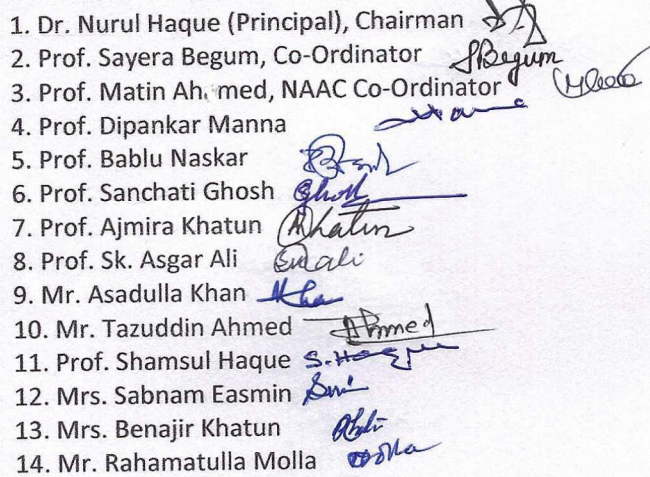 1. Dr. Nurul Haque (Principal), Chairman
2. Prof. Sayera Begum, Co-Ordinator SBegum
3. Prof. Matin Ah. med, NAAC Co-Ordinator
4. Prof. Dipankar Manna
5. Prof. Bablu Naskar
6. Prof. Sanchati Ghosh Ghosh
7. Prof. Ajmira Khatun Khatun
8. Prof. Sk. Asgar Ali
9. Mr. Asadulla Khan
10. Mr. Tazuddin Ahmed Ahmed
11. Prof. Shamsul Haque S. Haque
12. Mrs. Sabnam Easmin
13. Mrs. Benajir Khatun
14. Mr. Rahamatulla Molla Molla